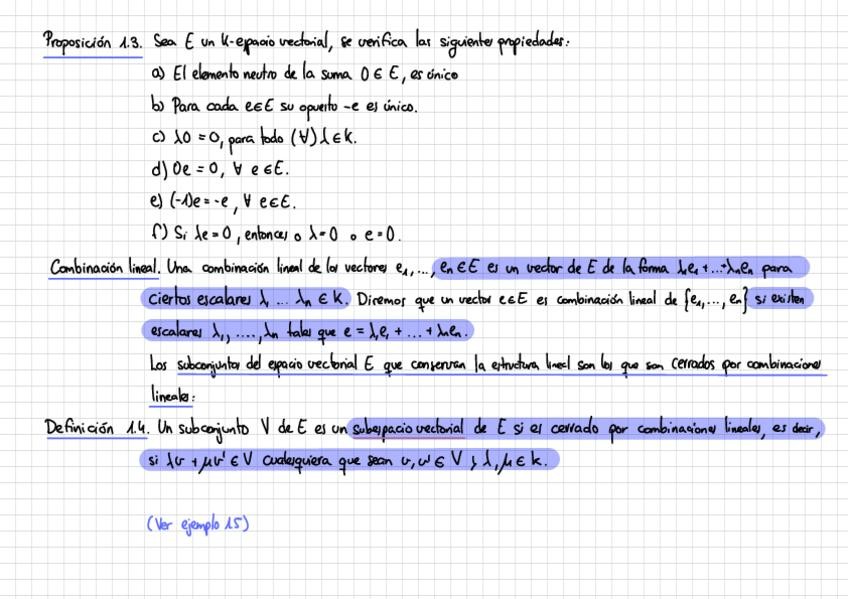 Proposición 1.3. Sea E un k-espacio vectorial, se verifica las siguientes propiedades:
a) El elemento neutro de la suma 0 ∈ E, es único
b) Para cada e∈E su opuesto -e es único.
c) λ0 = 0, para todo (∀) λ ∈ k.
d) 0e = 0, ∀ e ∈ E.
e) (-1)e = -e, ∀ e∈E.
f) Si λe = 0, entonces o λ=0 o e=0.
Combinación lineal. Una combinación lineal de los vectores e₁,..., eₙ ∈ E es un vector de E de la forma λ₁e₁ +...+ λₙeₙ para
ciertos escalares λ₁ ... λₙ ∈ k. Diremos que un vector e∈E es combinación lineal de {e₁,..., eₙ} si existen
escalares λ₁, ...., λₙ tales que e = λ₁e₁ + ... + λₙeₙ.
Los subconjuntos del espacio vectorial E que conservan la estructura lineal son los que son cerrados por combinaciones
lineales:
Definición 1.4. Un subconjunto V de E es un subespacio vectorial de E si es cerrado por combinaciones lineales, es decir,
si λv + μv' ∈ V cualesquiera que sean v, v' ∈ V y λ, μ ∈ k.
(Ver ejemplo 15)